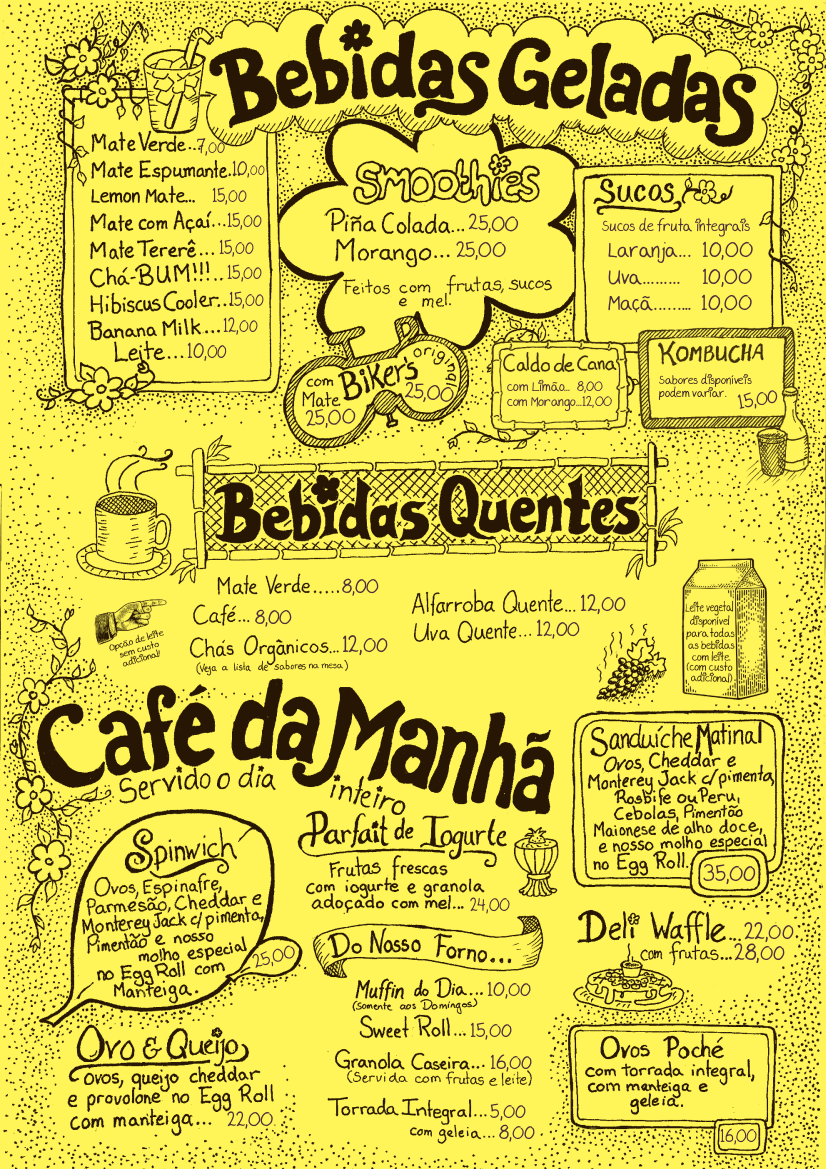 Bebidas Geladas
Mate Verde..7,00
Mate Espumante.10,00
Lemon Mate... 15,00
Mate com Açaí...15,00
Mate Tererê...15,00
Chá-BUM!!!..15,00
Hibiscus Cooler..15,00
Banana Milk...12,00
Leite...10,00
Smoothies
Piña Colada...25,00
Morango...25,00
Feitos com frutas, sucos
e mel.
Sucos
Sucos de fruta integrais
Laranja... 10,00
Uva......... 10,00
Maçã......... 10,00
Biker's
com
Mate
25,00
original
25,00
Caldo de Cana
com Limão... 8,00
com Morango...12,00
KOMBUCHA
Sabores disponíveis
podem variar.
15,00
Bebidas Quentes
Mate Verde.....8,00
Café... 8,00
Chás Orgânicos...12,00
(Veja a lista de sabores na mesa)
Alfarroba Quente...12,00
Uva Quente...12,00
Opção de leite
sem custo
adicional!
Leite vegetal
disponível
para todas
as bebidas
com leite.
(com custo
adicional).
Café da Manhã
Servido o dia inteiro
Spinwich
Ovos, Espinafre,
Parmesão, Cheddar e
Monterey Jack c/ pimenta,
Pimentão e nosso
molho especial
no Egg Roll com
Manteiga.
25,00
Ovo & Queijo
Ovos, queijo cheddar
e provolone no Egg Roll
com manteiga... 22,00
Parfait de Iogurte
Frutas frescas
com iogurte e granola
adoçado com mel... 24,00
Do Nosso Forno...
Muffin do Dia...10,00
(Somente aos Domingos)
Sweet Roll...15,00
Granola Caseira...16,00
(Servida com frutas e leite)
Torrada Integral...5,00
com geleia... 8,00
Sanduíche Matinal
Ovos, Cheddar e
Monterey Jack c/pimenta,
Rosbife ou Peru,
Cebolas, Pimentão
Maionese de alho doce,
e nosso molho especial
no Egg Roll.
35,00
Deli Waffle...22,00.
com frutas...28,00
Ovos Poché
com torrada integral,
com manteiga e
geleia.
16,00